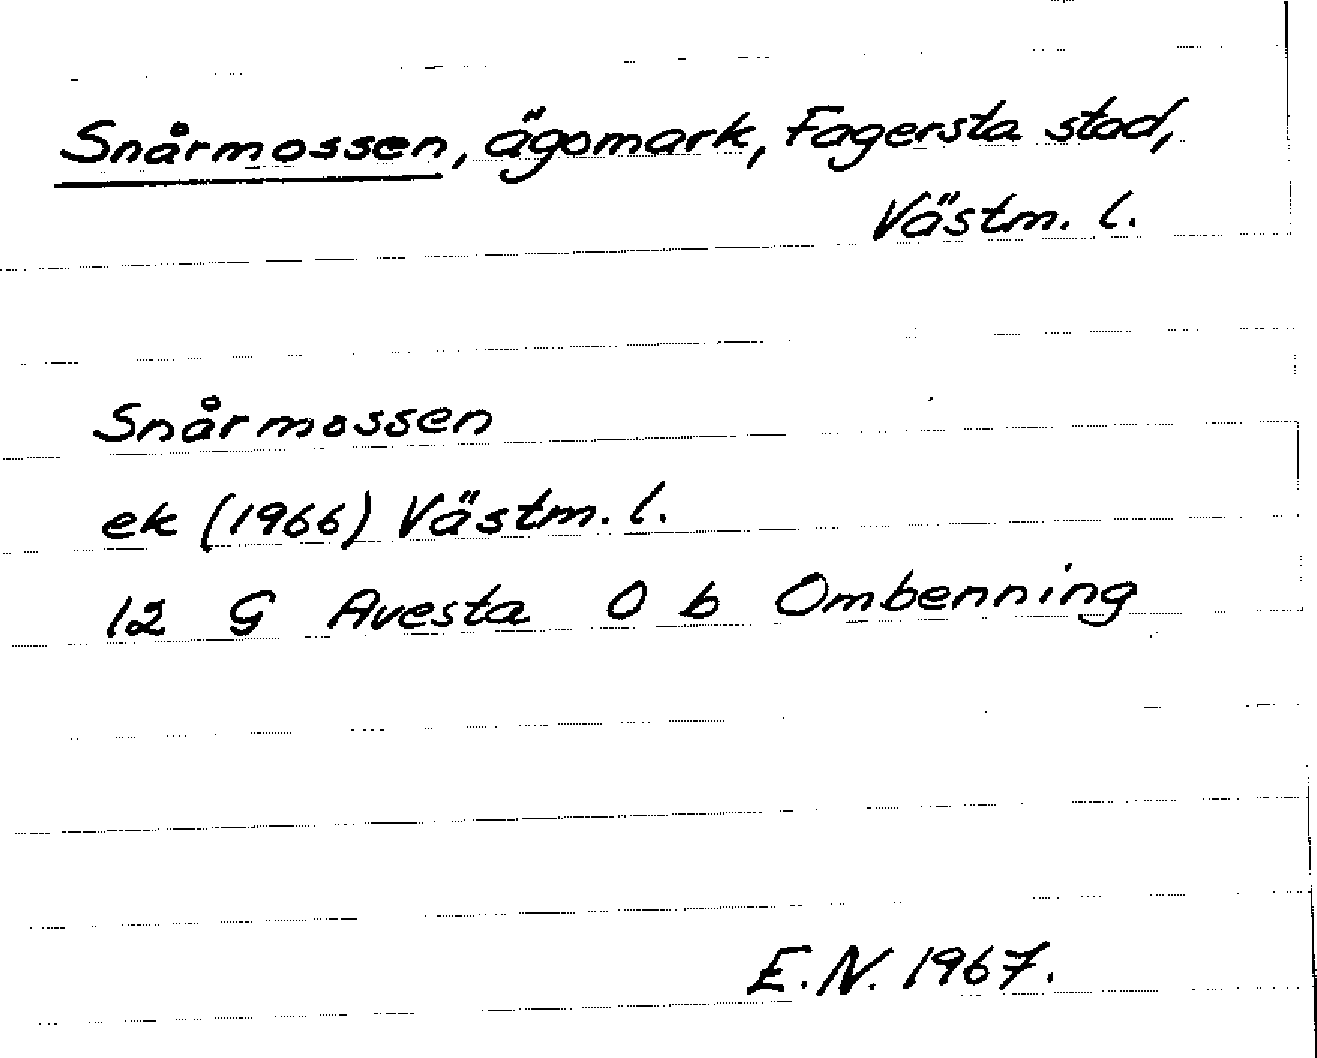 Snårmossen, ägomark, Fagersta stad,
Västm. l.
Snårmossen
ek (1966) Västm. l.
12 G Avesta 0 b Ombenning
E.N. 1967.